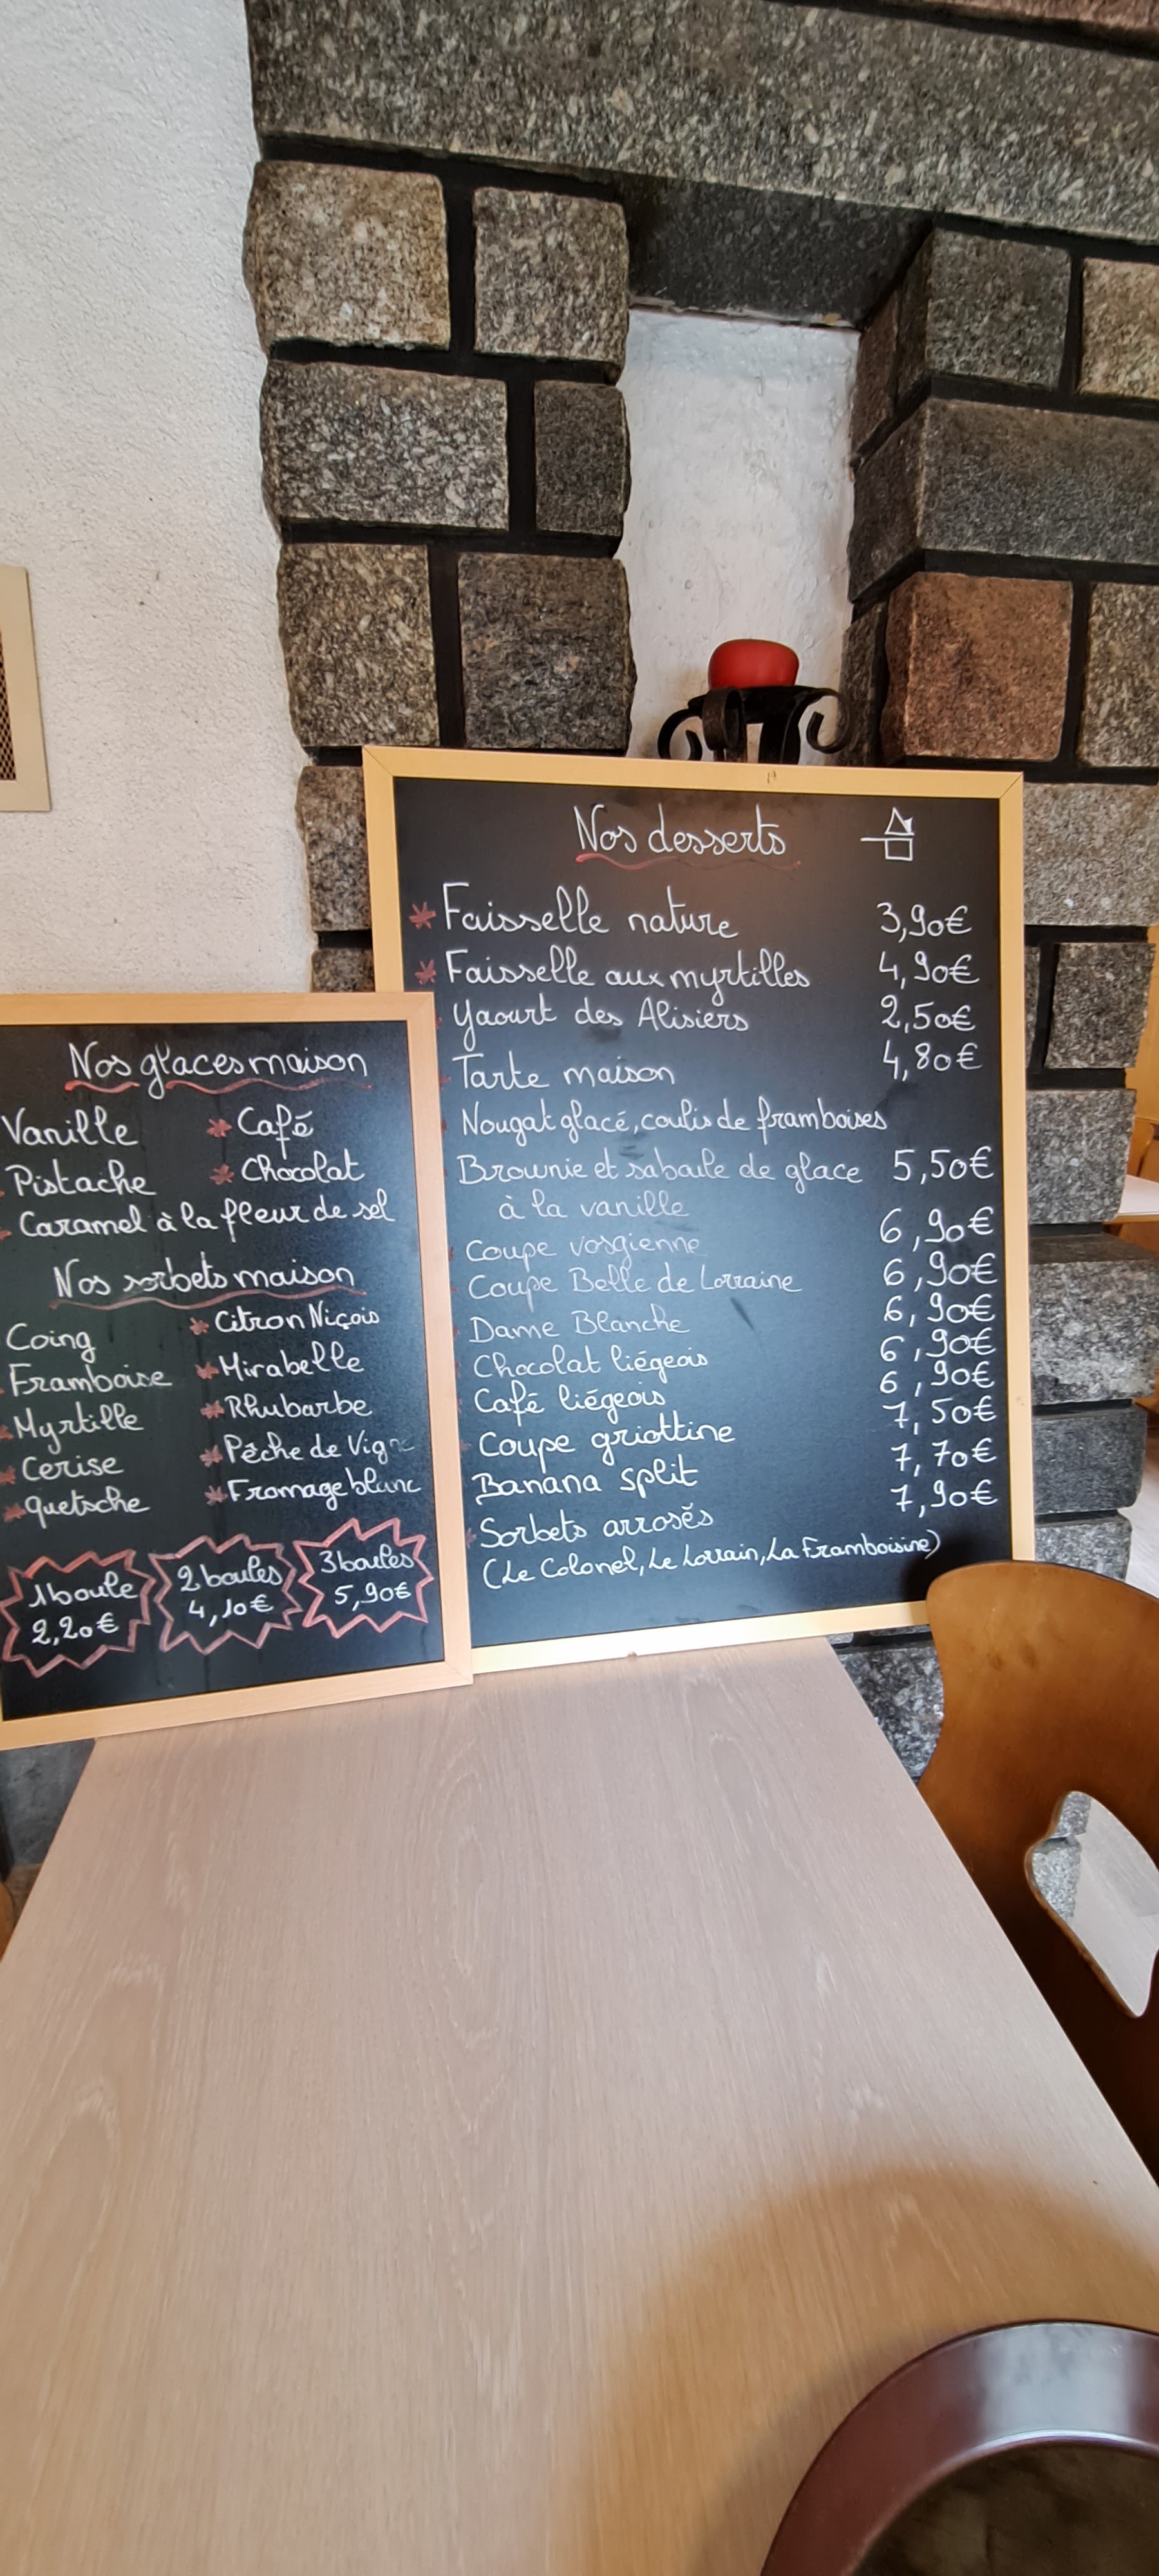 Nos desserts
* Faisselle nature 3,90€
* Faisselle aux myrtilles 4,90€
Yaourt des Alisiers 2,50€
Tarte maison 4,80€
Nougat glacé, coulis de framboises
Brownie et sa boule de glace 5,50€
à la vanille
Coupe vosgienne 6,90€
Coupe Belle de Lorraine 6,90€
Dame Blanche 6,90€
Chocolat liégeois 6,90€
Café liégeois 6,90€
Coupe griottine 7,50€
Banana split 7,70€
Sorbets arrosés 7,90€
(Le Colonel, Le Lorrain, La Framboisine)
Nos glaces maison
Vanille * Café
Pistache * Chocolat
Caramel à la fleur de sel
Nos sorbets maison
Coing * Citron Niçois
Framboise * Mirabelle
* Myrtille * Rhubarbe
* Cerise * Pêche de Vigne
* Quetsche * Fromage blanc
1 boule 2 boules 3 boules
2,20€ 4,10€ 5,90€